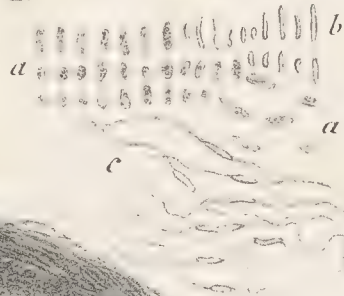 b
a
a
c